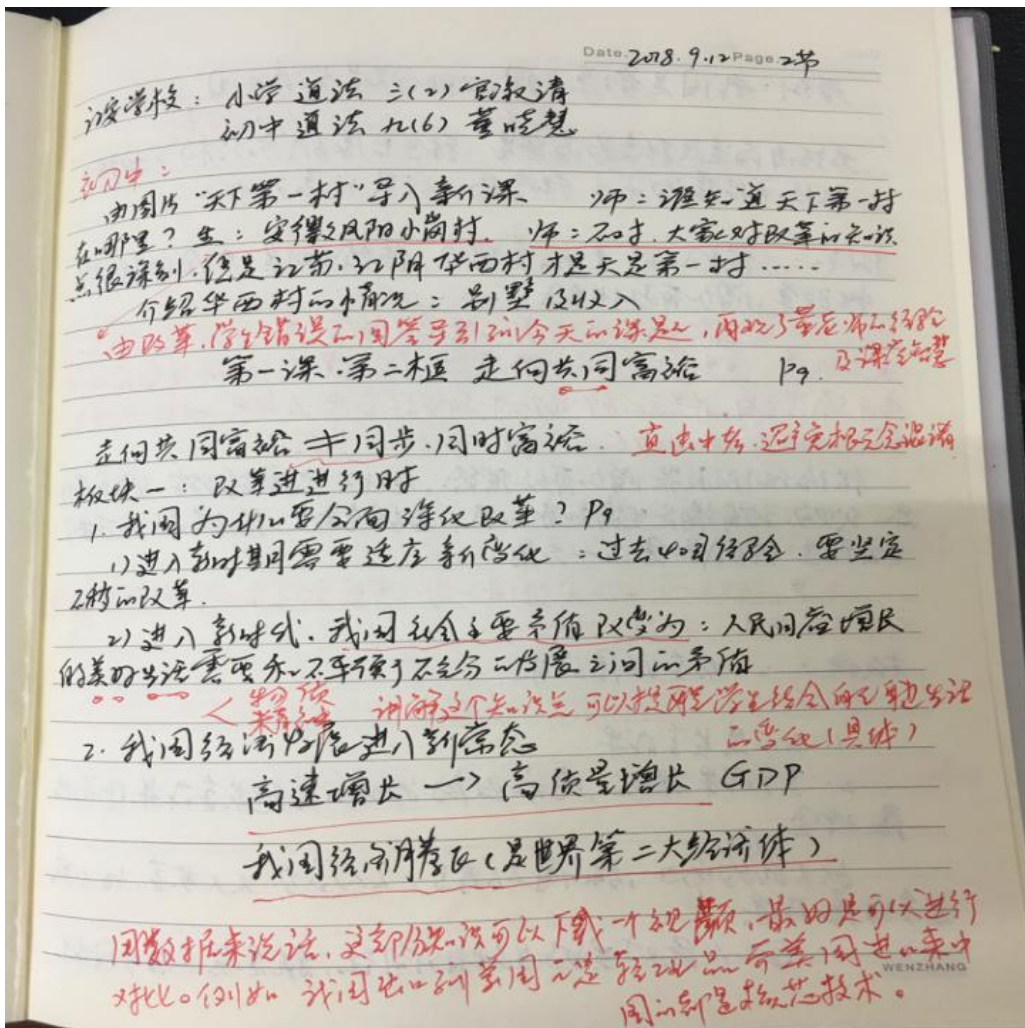 Date 2018.9.12 Page 2节
小学 道法 三(2) 官叙清
初中 道法 九(6) 董晓慧
初中:
由图片“天下第一村”导入新课 师:谁知道天下第一村
在哪里?生:安徽凤阳小岗村. 师:不对.大家对改革的知识
点很深刻.但是江苏.江阴华西村才是天是第一村……
介绍华西村的情况:别墅及收入
由改革,学生错误的回答导引到今天的课题,再现了董老师的经验
及课堂智慧
第一课.第二框 走向共同富裕 P9.
走向共同富裕 ≠ 同步.同时富裕. 直击中考.避免概念混淆
板块一:改革进进行时
1.我国为什么要全面深化改革?P9
1)进入新时期需要适应新变化:过去40年经验.要坚定
不移的改革.
2)进入新时代.我国社会主要矛盾改变为:人民日益增长
的美好生活需要和不平衡不充分的发展之间的矛盾
物质
精神
讲解这个知识点可以提醒学生结合自己身边生活
的变化(具体)
2.我国经济发展进入新常态
高速增长 → 高质量增长 GDP
我国经济腾飞(是世界第二大经济体)
用数据来说话,这部分知识可以下载一个视频,最好是可以进行
对比。例如 我国出口到美国的是轻工业品而美国进口来中
国的都是核心技术。
WENZHANG